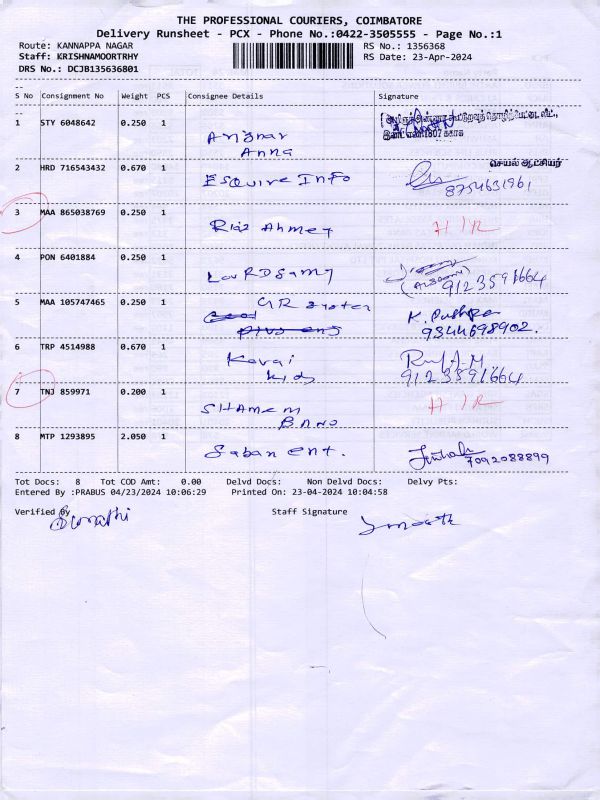 THE PROFESSIONAL COURIERS, COIMBATORE
Delivery Runsheet - PCX - Phone No.:0422-3505555 - Page No.:1
Route: KANNAPPA NAGAR RS No.: 1356368
Staff: KRISHNAMOORTRHY RS Date: 23-Apr-2024
DRS No.: DCJB135636801
S No Consignment No Weight PCS Consignee Details Signature
1 STY 6048642 0.250 1
Arignar
Anna
செயல் ஆட்சியர்
2 HRD 716543432 0.670 1 Esquire Info 8754631961
3 MAA 865038769 0.250 1 Riaz Ahmey H/R
4 PON 6401884 0.250 1 LouRDSamy 9123591664
5 MAA 105747465 0.250 1 GR System K. Pushpa
9344698902.
6 TRP 4514988 0.670 1 Kovai
Kids 9123591664
7 TNJ 859971 0.200 1 SHAMEM H/R
BANO
8 MTP 1293895 2.050 1 Saban ent. 7092088899
Tot Docs: 8 Tot COD Amt: 0.00 Delvd Docs: Non Delvd Docs: Delvy Pts:
Entered By :PRABUS 04/23/2024 10:06:29 Printed On: 23-04-2024 10:04:58
Verified By Staff Signature